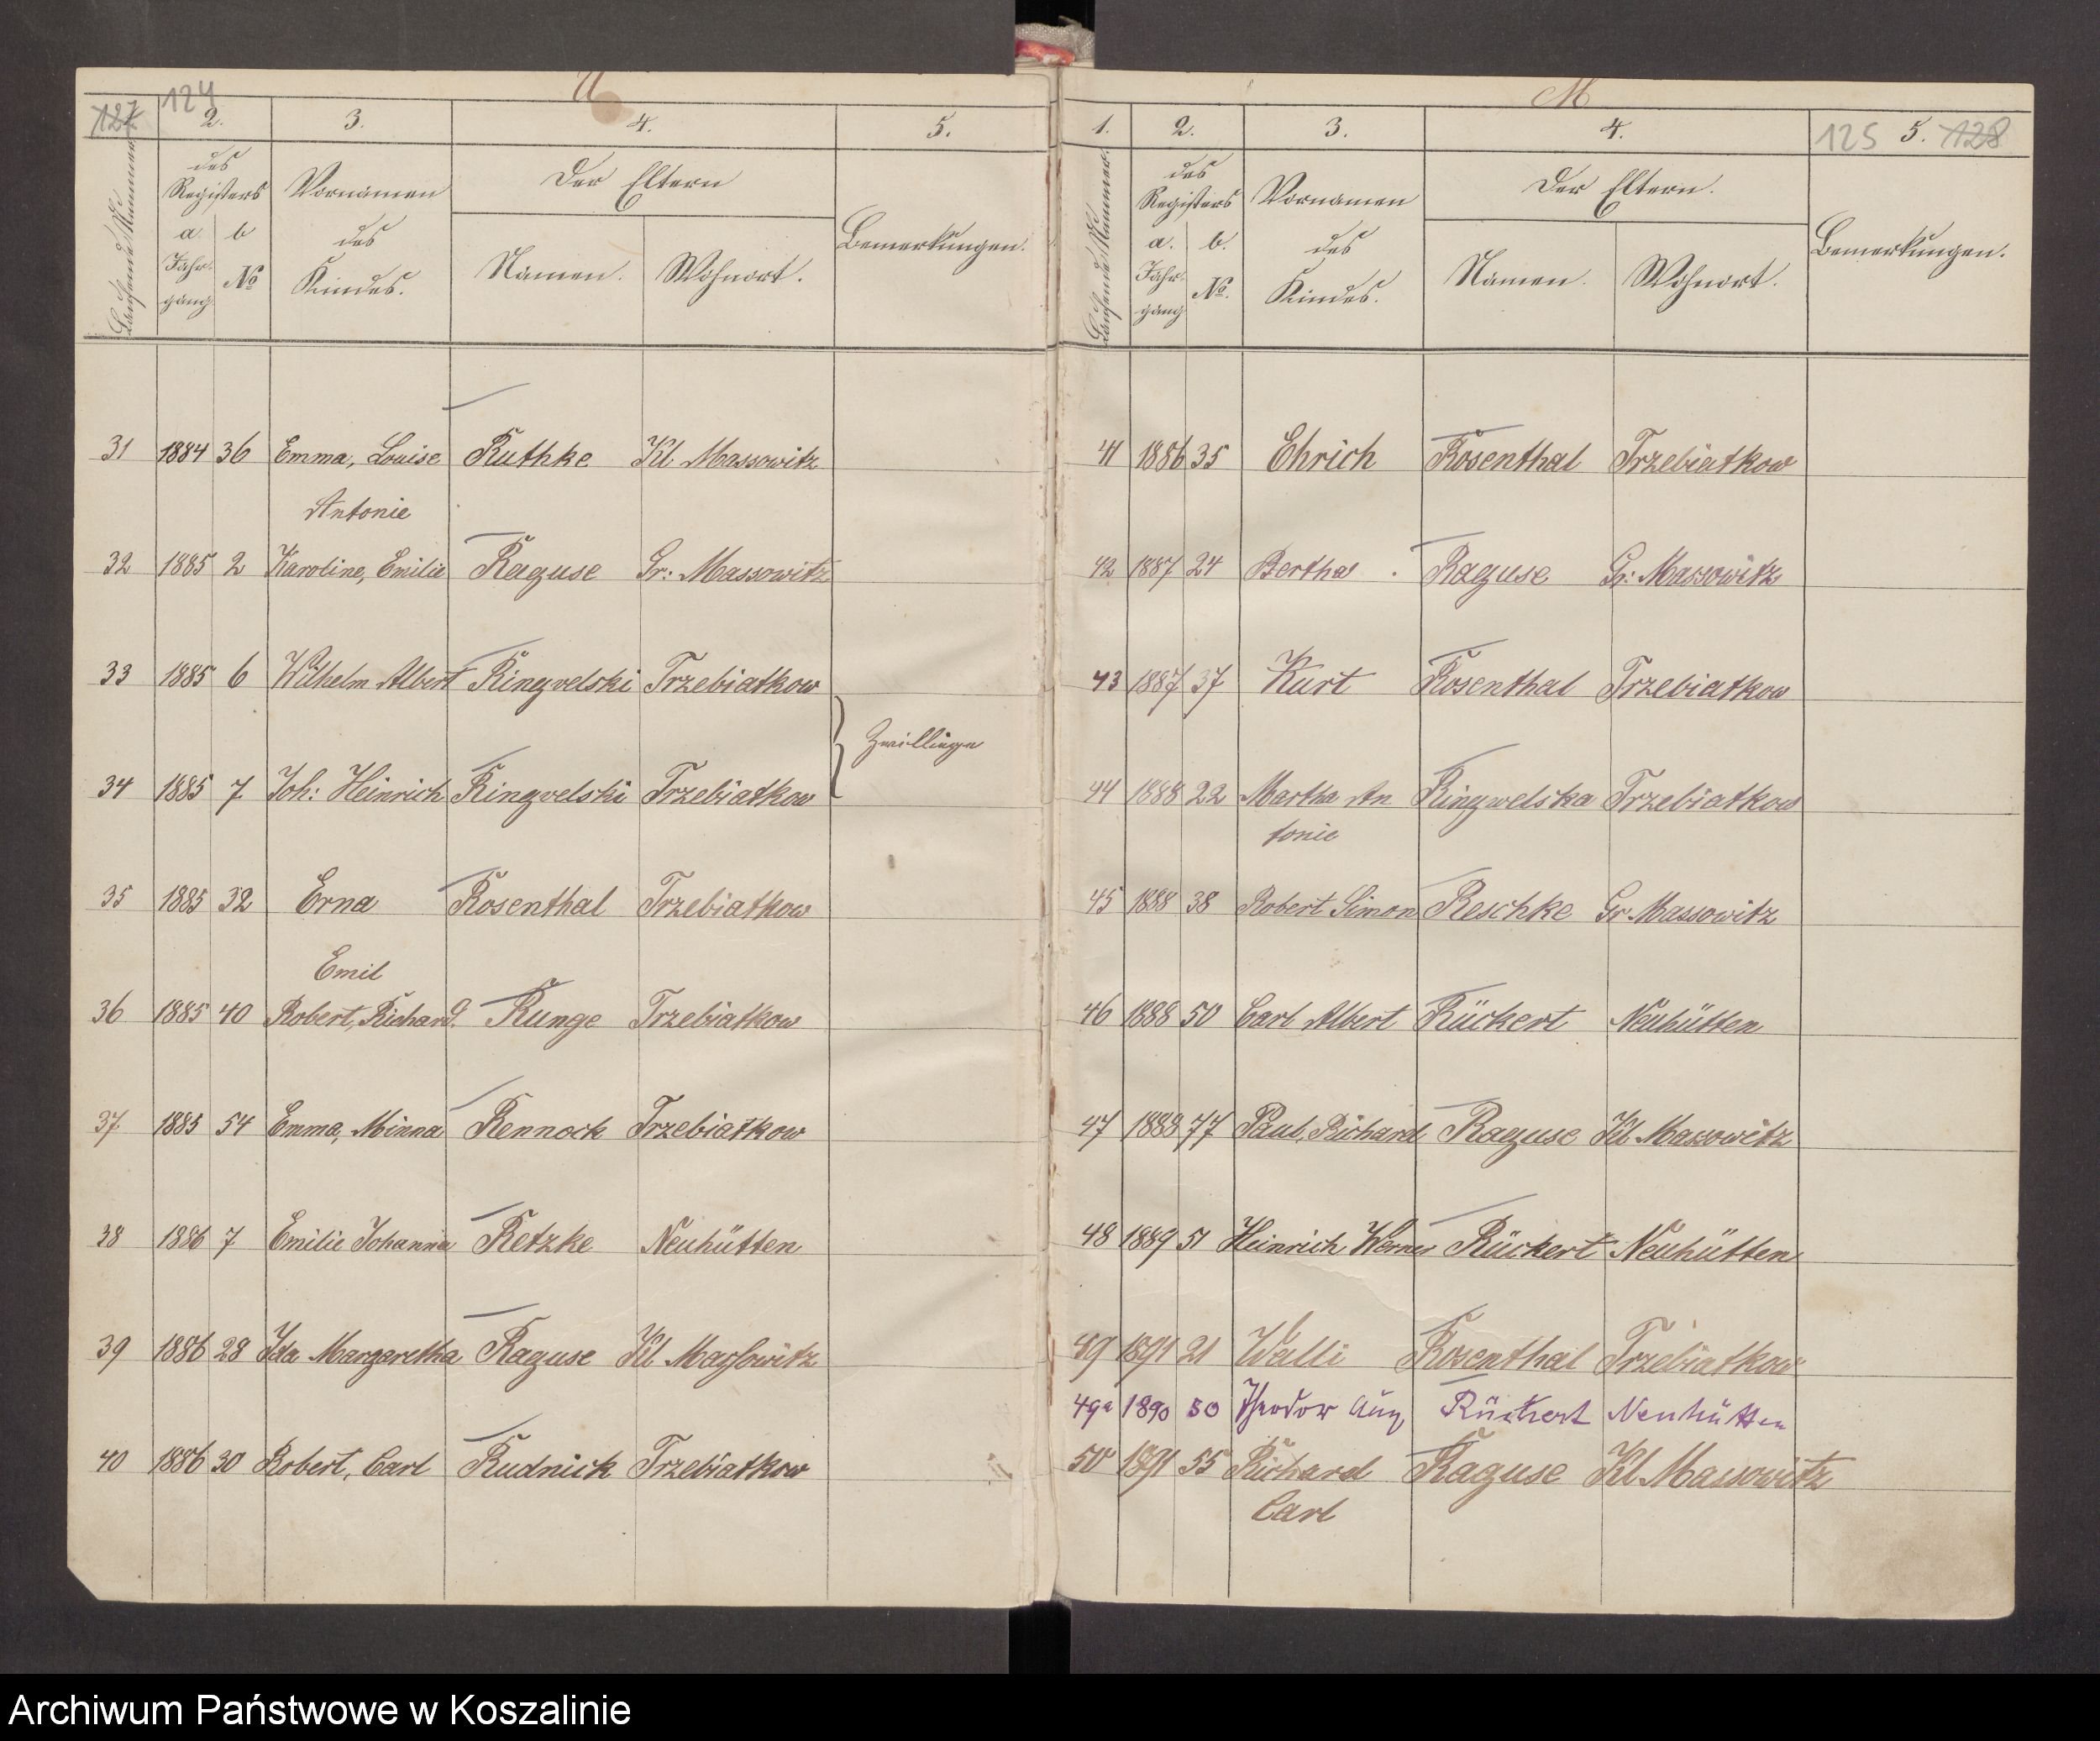 127 124
1. 2. 3. 4. 5.
Laufende Nummer
des Registers
a. Jahrgang
b №
Vornamen des Kindes.
Der Eltern
Namen.
Wohnort.
Bemerkungen.
31 1884 36 Emma, Louise Ruthke Kl Massowitz
Antonie
32 1885 2 Karoline, Emilie Raguse Gr: Massowitz
33 1885 6 Wilhelm Albert Ringvelski Trzebiatkow
Zwillinge
34 1885 7 Joh: Heinrich Ringvelski Trzebiatkow
35 1885 32 Erna Rosenthal Trzebiatkow
Emil
36 1885 40 Robert, Richard. Runge Trzebiatkow
37 1885 54 Emma, Minna Rennock Trzebiatkow
38 1886 7 Emilie Johanna Retzke Neuhütten
39 1886 28 Ida Margaretha Raguse Kl Maſsowitz
40 1886 30 Robert, Carl Rudnick Trzebiatkow
1. 2. 3. 4. 125 5. 128
Laufende Nummer.
des Registers
a. Jahrgang
b. №.
Vornamen des Kindes.
Der Eltern.
Namen.
Wohnort.
Bemerkungen.
41 1886 35 Ehrich Rosenthal Trzebiatkow
42 1887 24 Bertha. Raguse Gr: Massowitz
43 1887 37 Kurt Rosenthal Trzebiatkow
44 1888 22 Martha An Ringwelska Trzebiatkow
tonie
45 1888 38 Robert Simon Reschke Gr Massowitz
46 1888 50 Carl Albert Rückert Neuhütten
47 1888 77 Paul, Richard Raguse Kl Massowitz
48 1889 51 Heinrich Werner Rückert Neuhütten
49 1891 21 Walli Rosenthal Trzebiatkow
49a 1890 50 Theodor Aug Rückert Neuhütten
50 1891 55 Richard Raguse Kl Massowitz
Carl
Archiwum Państwowe w Koszalinie